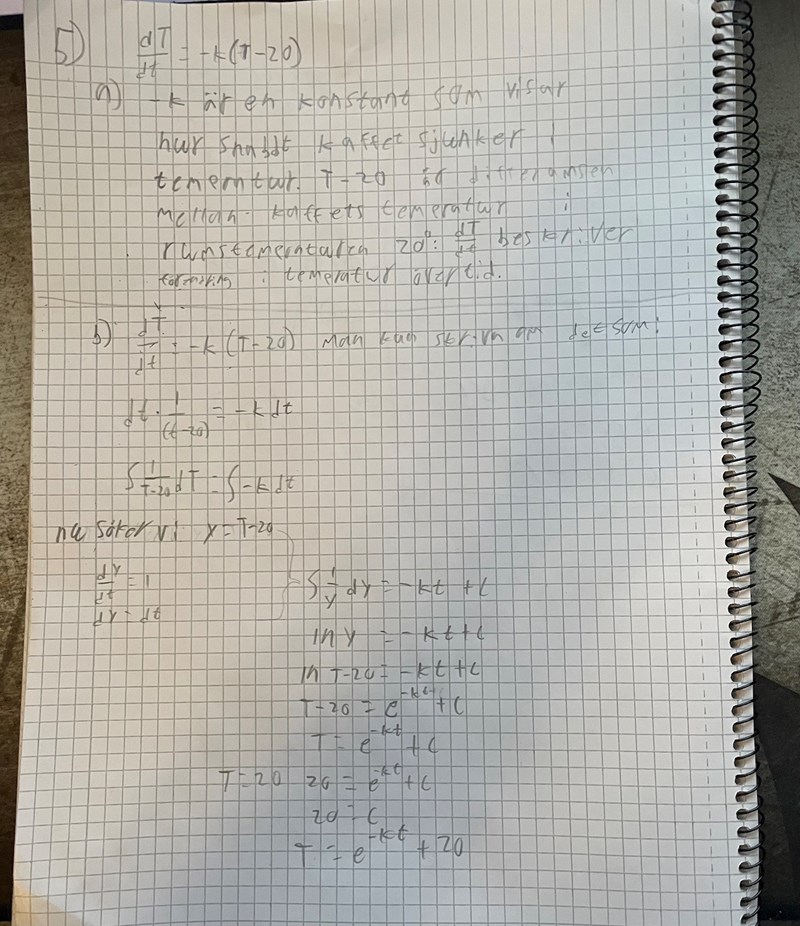 5) dT/dt = -k(T-20)
a) -k är en konstant som visar
hur snabbt kaffet sjunker i
temerntur. T-20 är differansen
mellan kaffets temeratur i
20°. dT/dt beskriver
i temeratur över tid.
b) dT/dt = -k(T-20) Man kan skriva om det som:
dt · 1/(T-20) = -k dt
∫ 1/(T-20) dT = ∫ -k dt
nu söker vi y = T-20
= 1
dy = dt
∫ 1/y dy = -kt + C
ln y = -kt + C
ln T-20 = -kt + C
T-20 = e^-kt + C
T = e^-kt + C
T=20 20 = e^-kt + C
20 = C
T = e^-kt + 20